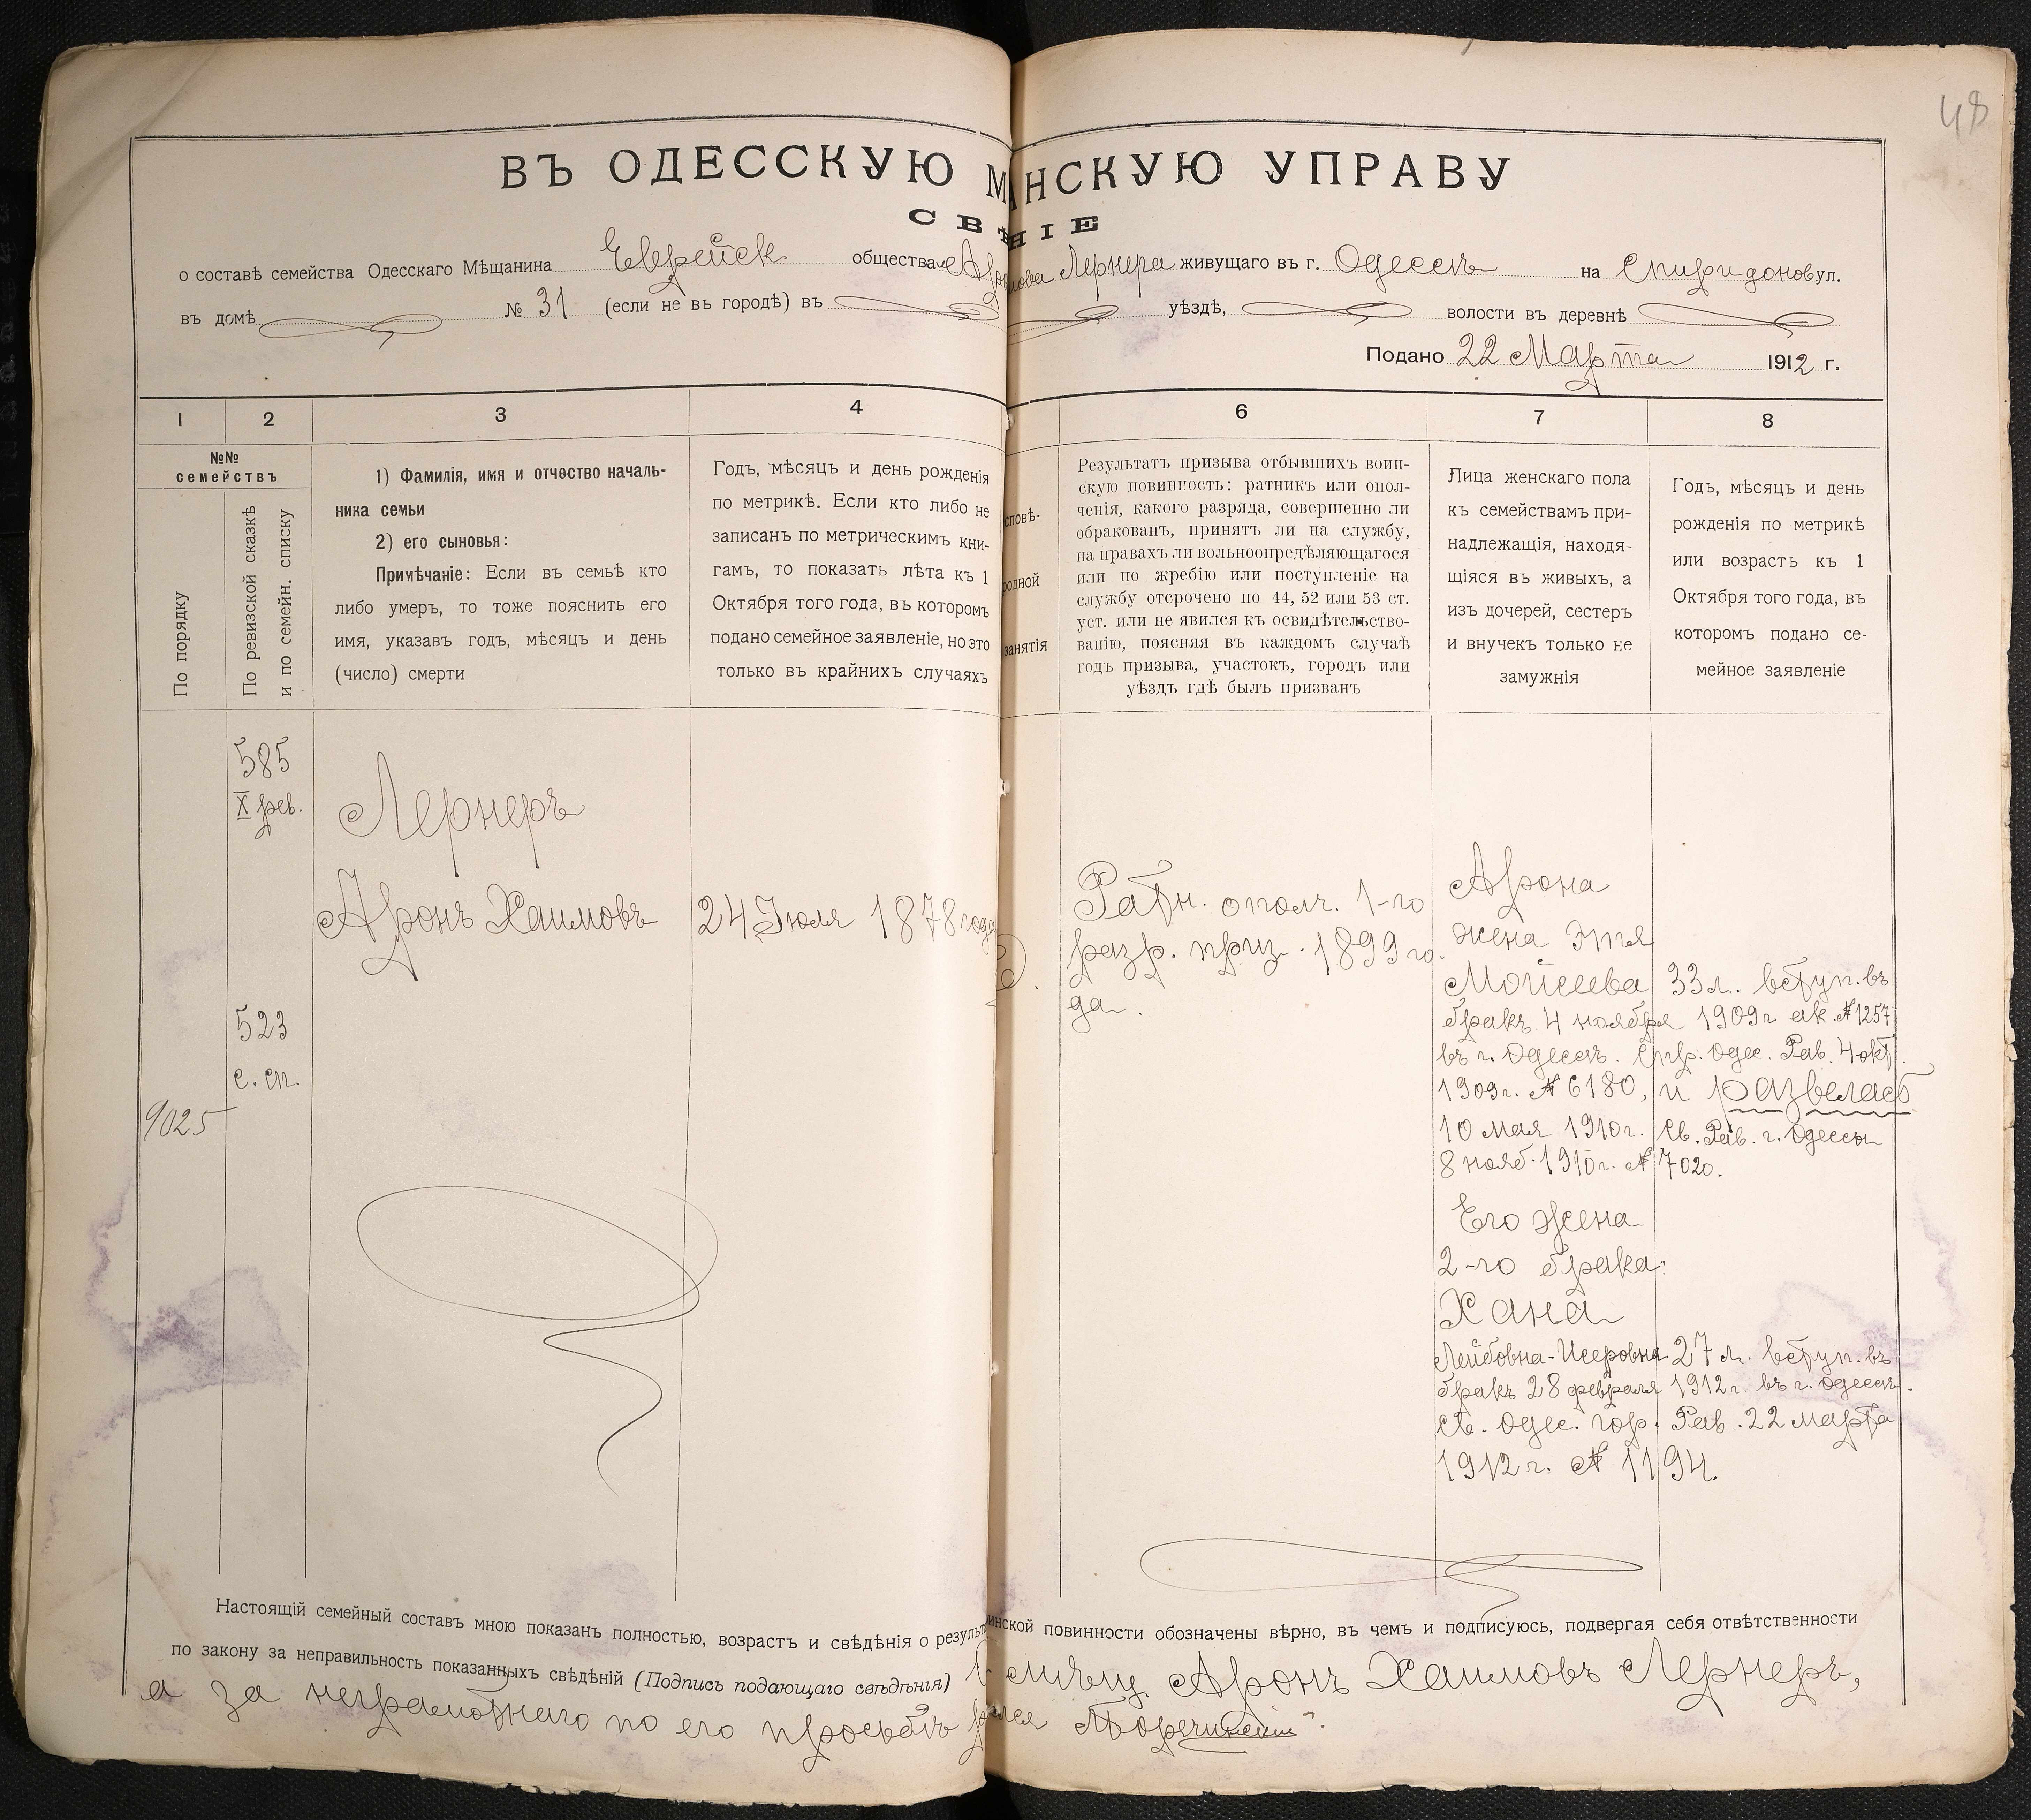 48
ВЪ ОДЕССКУЮ М НСКУЮ УПРАВУ
СВѢ НІЕ
о составѣ семейства Одесскаго Мѣщанина Еврейск общества Ар мова Лернера живущаго въ г. Одессѣ на Спиридонов ул.
въ домѣ № 31 (если не въ городѣ) въ уѣздѣ, волости въ деревнѣ
Подано 22 Марта 1912 г.
1 2 3 4 6 7 8
№№
семействъ
По порядку
По ревизской сказкѣ
и по семейн. списку
1) Фамилія, имя и отчество началь-
ника семьи
2) его сыновья:
Примѣчаніе: Если въ семьѣ кто
либо умеръ, то тоже пояснить его
имя, указавъ годъ, мѣсяцъ и день
(число) смерти
Годъ, мѣсяцъ и день рожденія
по метрикѣ. Если кто либо не
записанъ по метрическимъ кни-
гамъ, то показать лѣта къ 1
Октября того года, въ которомъ
подано семейное заявленіе, но это
только въ крайнихъ случаяхъ
сповѣ-
родной
занятія
Результатъ призыва отбывшихъ воин-
скую повинность: ратникъ или опол-
ченія, какого разряда, совершенно ли
обракованъ, принятъ ли на службу,
на правахъ ли вольноопредѣляющагося
или по жребію или поступленіе на
службу отсрочено по 44, 52 или 53 ст.
уст. или не явился къ освидѣтельство-
ванію, поясняя въ каждомъ случаѣ
годъ призыва, участокъ, городъ или
уѣздъ гдѣ былъ призванъ
Лица женскаго пола
къ семействамъ при-
надлежащія, находя-
щіяся въ живыхъ, а
изъ дочерей, сестеръ
и внучекъ только не
замужнія
Годъ, мѣсяцъ и день
рожденія по метрикѣ
или возрастъ къ 1
Октября того года, въ
которомъ подано се-
мейное заявленіе
585
X рев.
523
с. сп.
9025
Лернеръ
Аронъ Хаимовъ
24 Іюля 1878 года
Ратн. ополч. 1-го
разр. приз. 1899 го-
да.
Арона
жена Этя
Мойсеева 33 л. вступ. въ
бракъ 4 ноября 1909 г. ак. № 1257
въ г. Одессѣ. Спр. Одес. Рав. 4 окт.
1909 г. № 6180, и развелась
10 мая 1910 г. Св. Рав. г. Одессы
8 нояб. 1910 г. № 7020.
Его жена
2-го брака:
Хана
Лейбовна-Исеровна 27 л. вступ. въ
бракъ 28 февраля 1912 г. въ г. Одессѣ.
св. Одес. гор. Рав. 22 марта
1912 г. № 1194.
Настоящій семейный составъ мною показанъ полностью, возрастъ и свѣдѣнія о результ инской повинности обозначены вѣрно, въ чемъ и подписуюсь, подвергая себя отвѣтственности
по закону за неправильность показанныхъ свѣдѣній (Подпись подающаго свѣдѣнія) мѣщ. Аронъ Хаимовъ Лернеръ,
а за неграмотнаго по его просьбѣ р лся